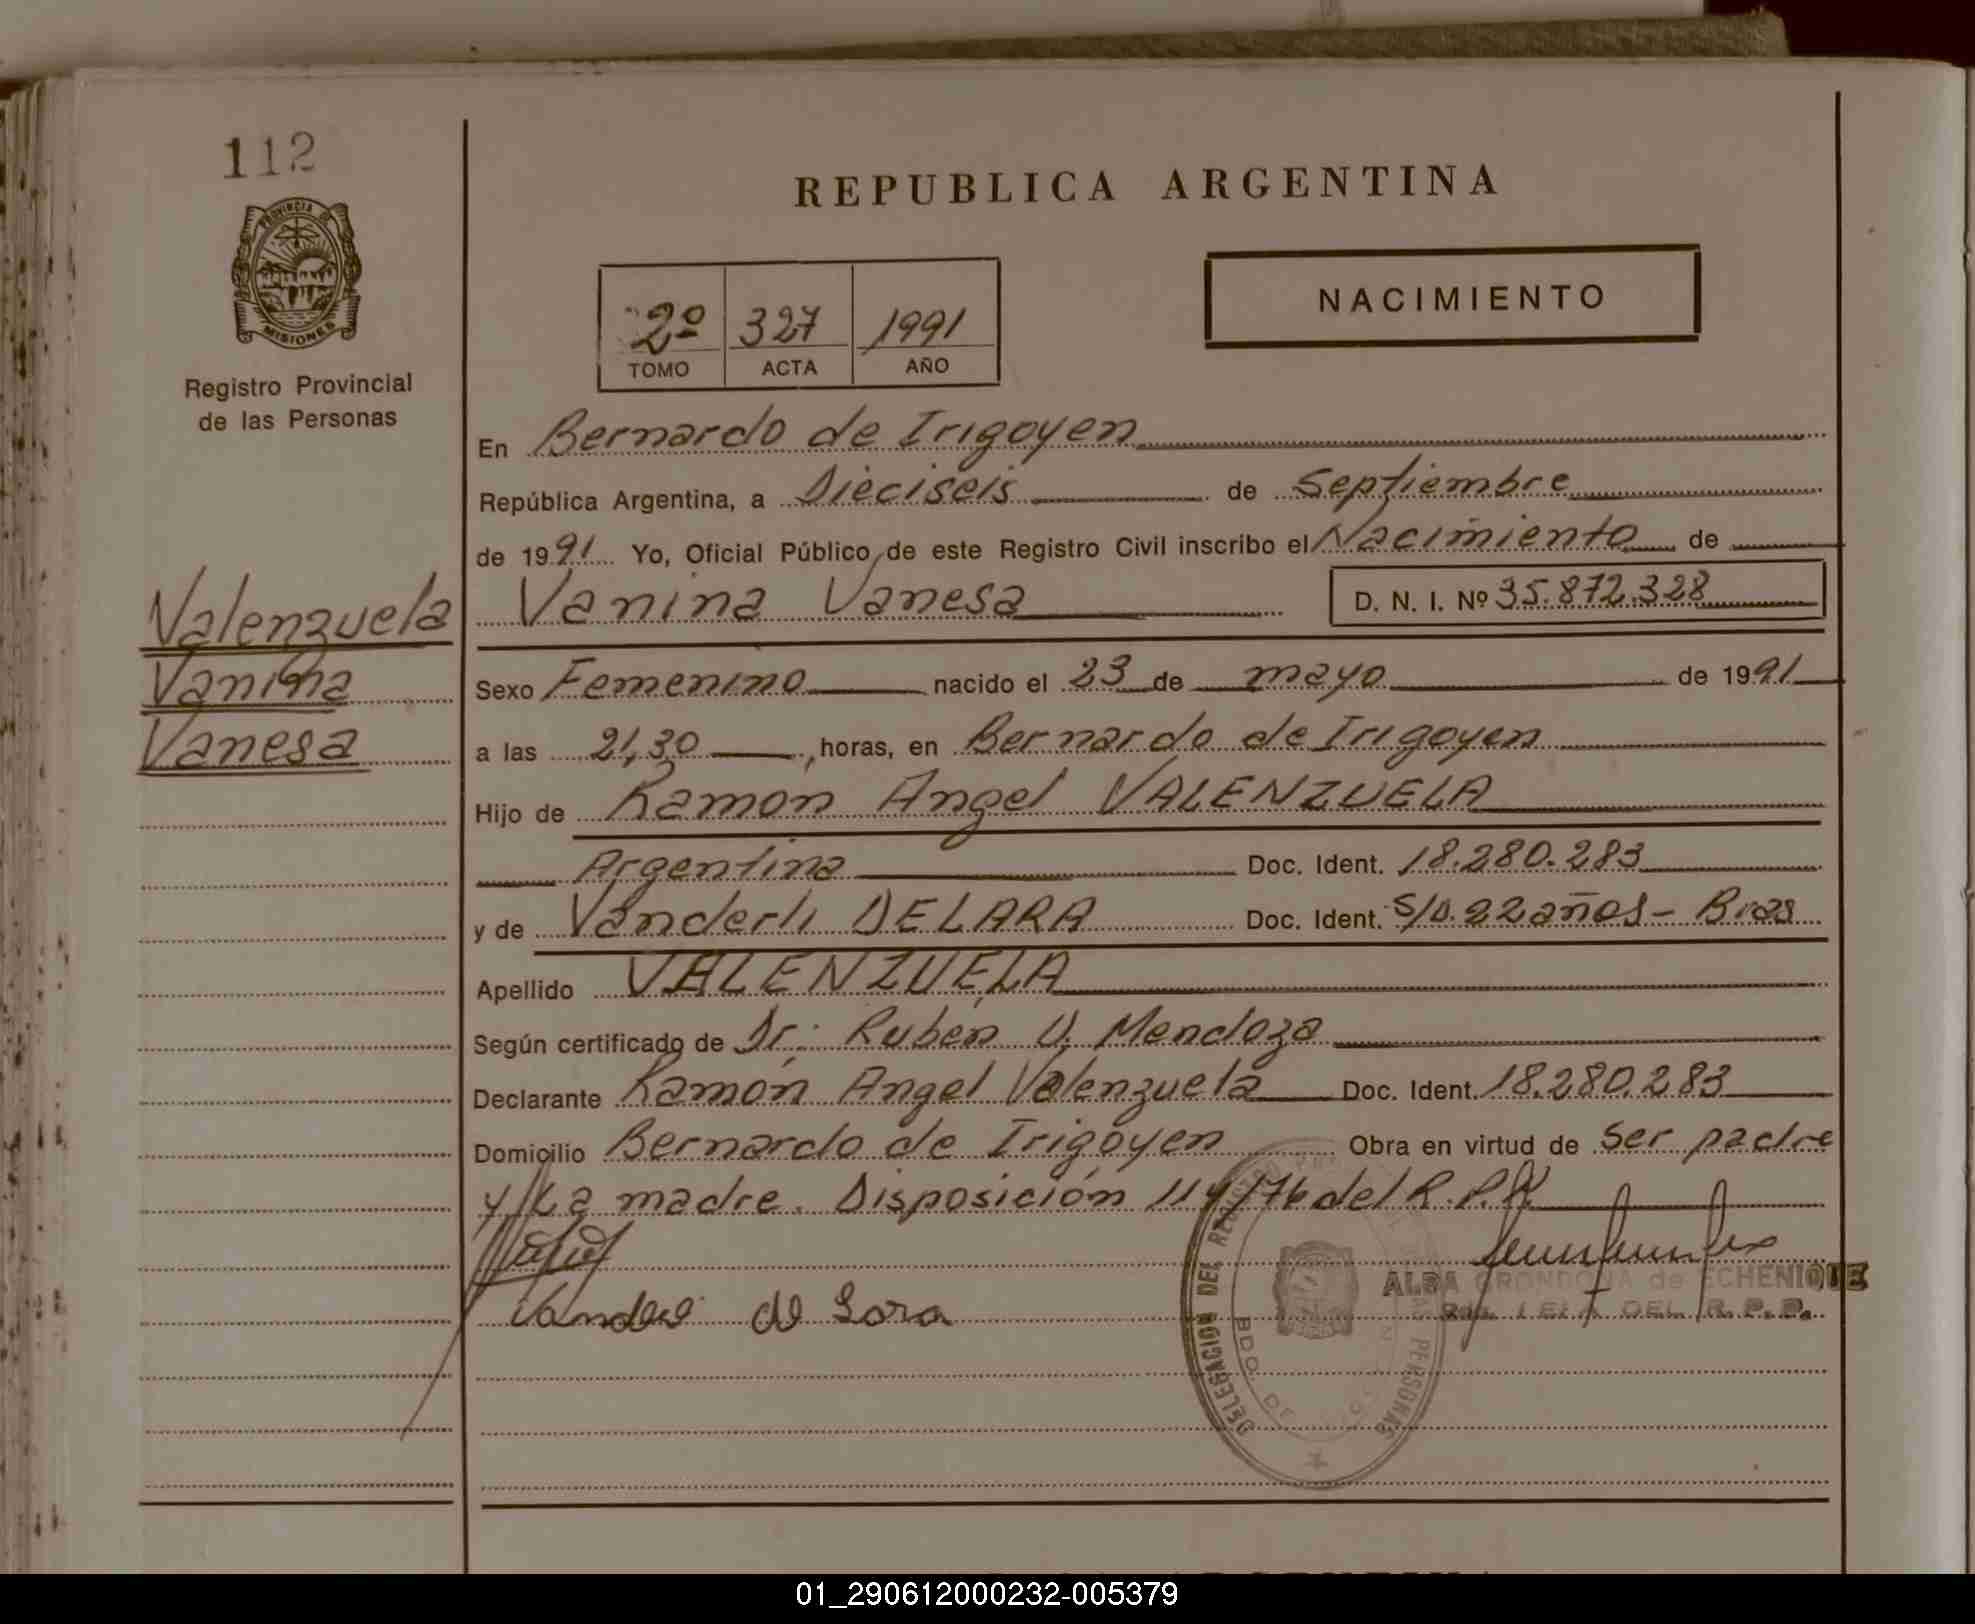 112
PROVINCIA DE
MISIONES
Registro Provincial
de las Personas
Valenzuela
Vanina
Vanesa
REPUBLICA ARGENTINA
2º 327 1991
TOMO ACTA AÑO
NACIMIENTO
En Bernardo de Irigoyen
República Argentina, a Dieciseis de Septiembre
de 1991 Yo, Oficial Público de este Registro Civil inscribo el Nacimiento de
Vanina Vanesa D. N. I. Nº 35.872.328
Sexo Femenino nacido el 23 de mayo de 1991
a las 21,30 horas, en Bernardo de Irigoyen
Hijo de Ramon Angel VALENZUELA
Argentina Doc. Ident. 18.280.283
y de Vanderli DELARA Doc. Ident. S/D. 22 años - Bras
Apellido VALENZUELA
Según certificado de Dr: Ruben U. Mendoza
Declarante Ramón Angel Valenzuela Doc. Ident. 18.280.283
Domicilio Bernardo de Irigoyen Obra en virtud de Ser padre
y La madre. Disposición 114/76 del R.P.P.
ALBA GRONDONA de ECHENIQUE
DEL R. P. P.
de Lara
DELEGACION DEL REGISTRO PERSONAS
BDO. DE
01_290612000232-005379